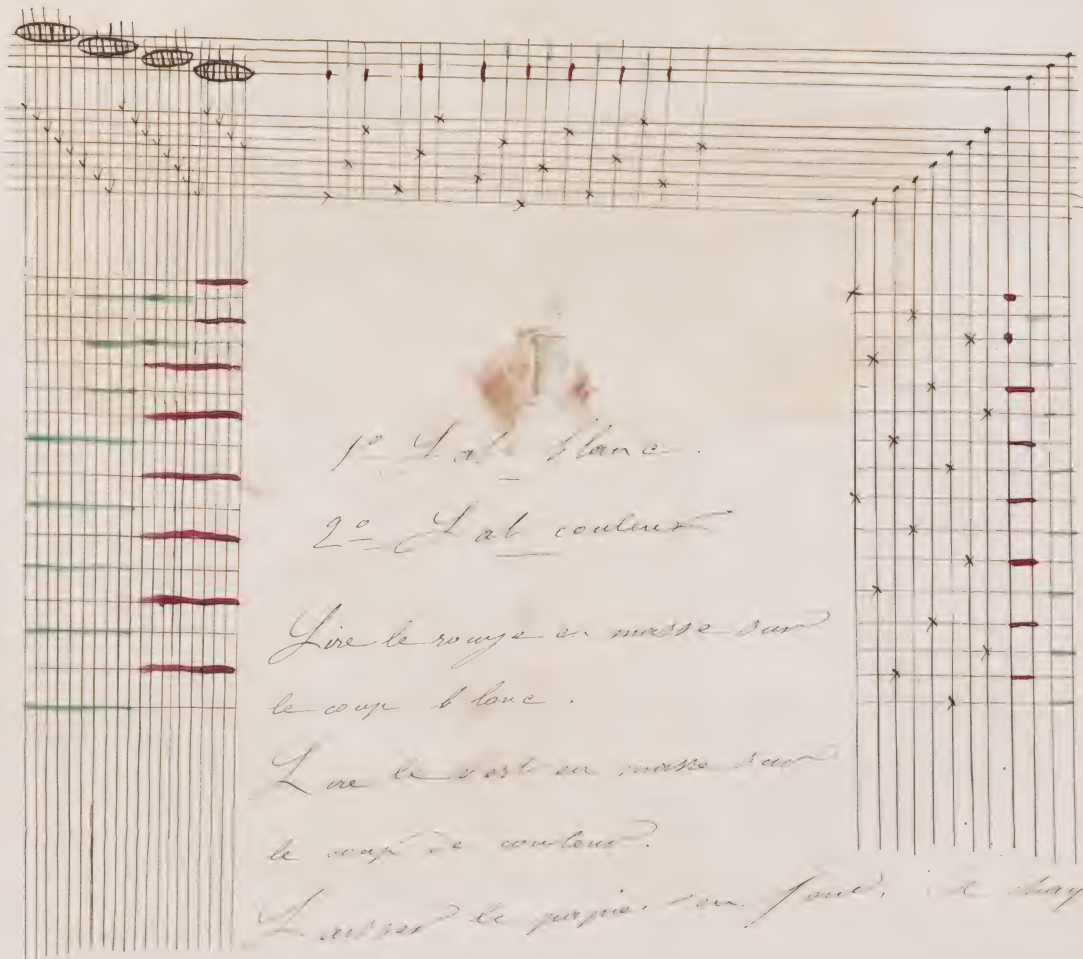 1º Lat blanc.
2º Lat couleur
Lire le rouge en masse sur
le coup blanc.
Lire le vert en masse sur
le coup de couleur.
Laisser le papier en fond.